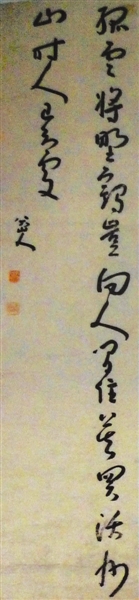 孤雲將野鶴豈向人間住莫買沃洲
山時人已知處
八大山人